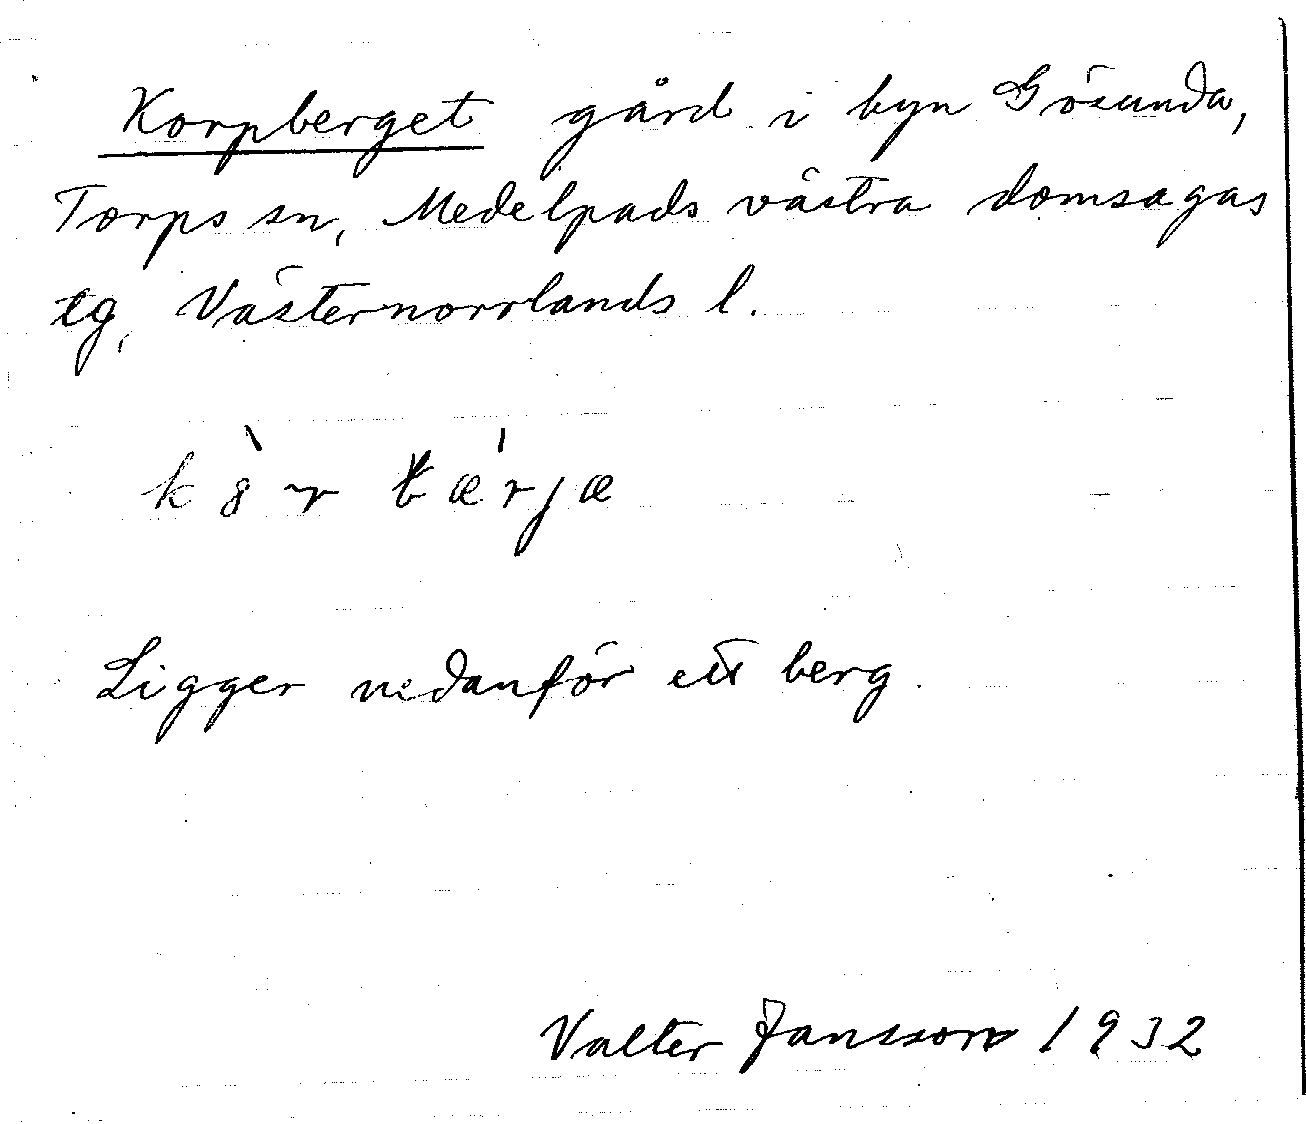 Korpberget gård i byn Gösunda,
Torps sn, Medelpads västra domsagas
tg, Västernorrlands l.
Ligger nedanför ett berg.
Valter Jansson 1932